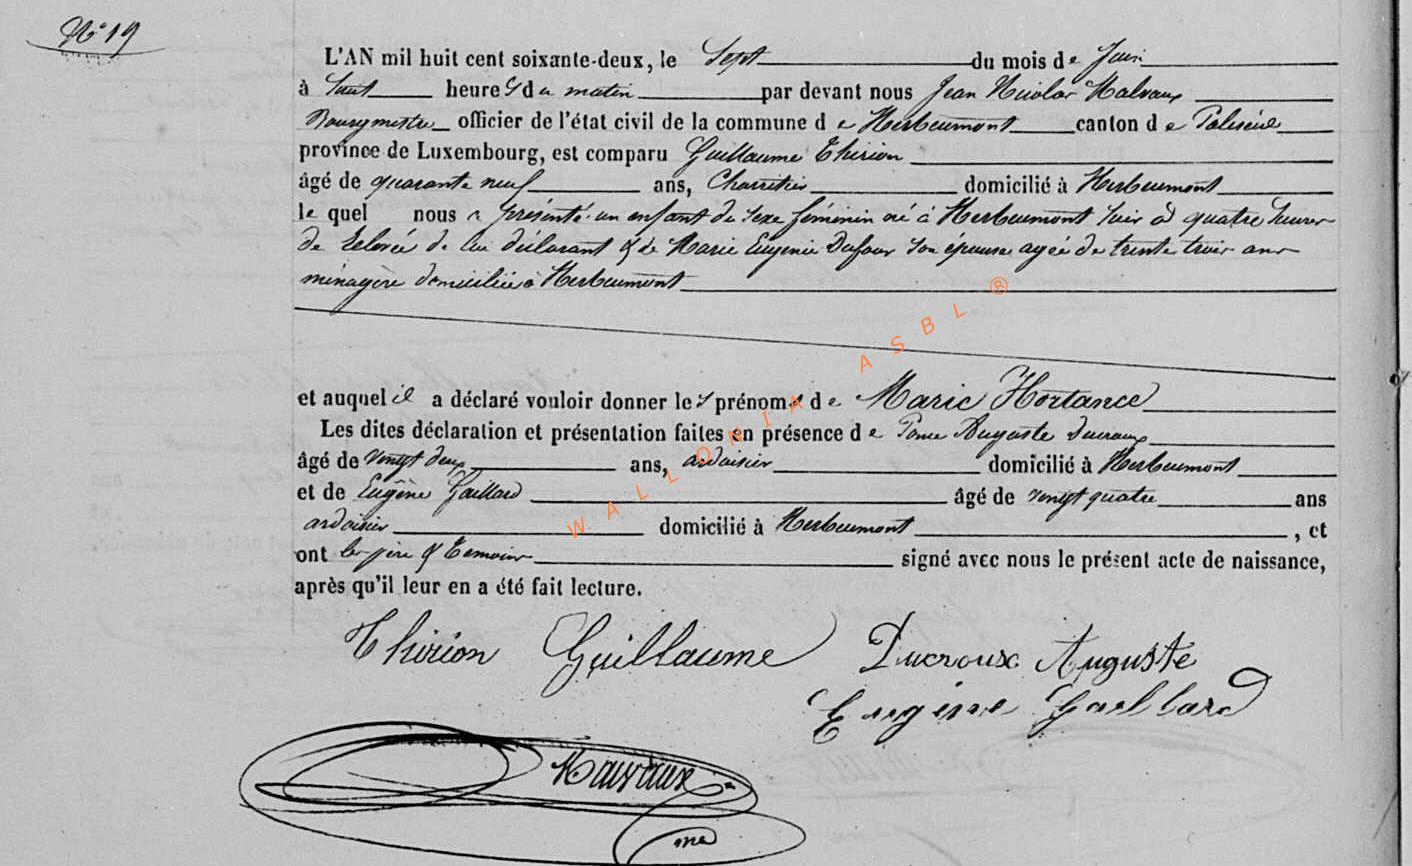 N° 19
L'AN mil huit cent soixante-deux, le Sept du mois de Juin
à huit heures du matin par devant nous Jean Nicolas Malvaux
Bourgmestre officier de l'état civil de la commune de Herbeumont canton de Paliseul
province de Luxembourg, est comparu Guillaume Thirion
âgé de quarante neuf ans, Charretier domicilié à Herbeumont
lequel nous a présenté un enfant du sexe féminin né à Herbeumont hier à quatre heures
de relevée de lui déclarant & de Marie Eugenie Dufour son épouse agée de trente trois ans
ménagère domiciliée à Herbeumont
et auquel il a déclaré vouloir donner les prénoms de Marie Hortance
Les dites déclaration et présentation faites en présence de Auguste Ducroux
âgé de vingt deux ans, ardoisier domicilié à Herbeumont
et de Eugène Gaillard âgé de vingt quatre ans
ardoisier domicilié à Herbeumont, et
ont les père & Temoins signé avec nous le présent acte de naissance,
après qu'il leur en a été fait lecture.
Thirion Guillaume Ducroux Auguste
Eugène Gaillard
WALLONIA ASBL ®